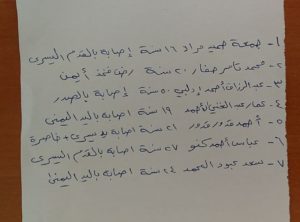 ١- جمعة حميد مراد ١٦ سنة إصابة بالقدم اليسرى
٢- محمد ناصر صفار ٢٠ سنة رض فخذ أيمن
٣- عبد الرزاق أحمد إدلبي ٥٠ سنة إصابة بالصدر
٤- عمار عبد الغني الأحمد ١٩ سنة اصابة باليد اليمنى
٥- أحمد قدور قدور ٢١ سنة اصابة يد يسرى + خاصرة
٦- عباس أحمد كنو ٢٧ سنة اصابة بالقدم اليسرى
٧- سعد عبود المحمد ٢٤ سنة اصابة باليد اليمنى